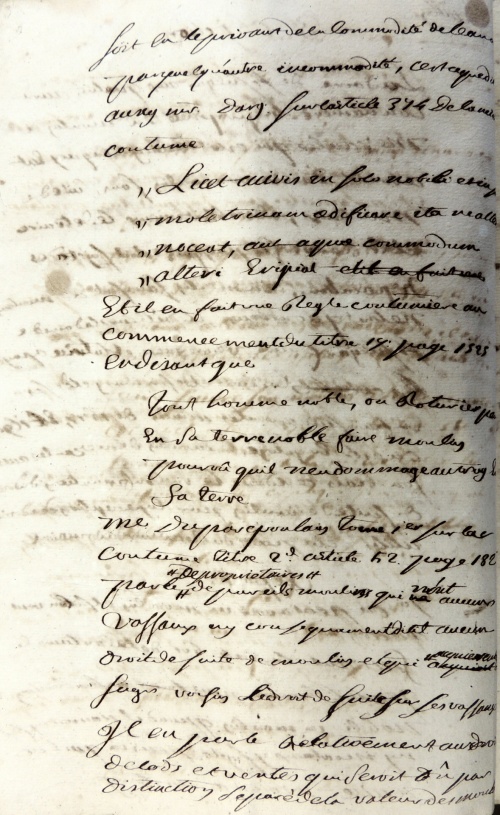 soit en le privant de la Commodité de l'eau
par quelqu'autre incommodité, c'est ce que dit
aussy mr. Darg. sur l'article 374 de la
coutume
„ Licet cuivis in solo nobili
„ moletrinam ædificare ita ne alteri
„ noceat, aut aquæ commodum
„ alteri Eripiat
Et il en fait une Regle coutumiere au
commencement du titre 19. page 1525
En disant que
Tout homme noble, ou Roturier peut
En Sa terre noble faire moulin
pourvû qu'il n'endommage autruy
Sa terre
me Duparcpoulain tome 1er sur la
Coutume titre 2d article 52. page 182
#De proprietaires#
parle # de pareils moulins qui n'ont aucuns
Vassaux ny consequamment dit aucun
droit de suite de moulin et qui
Le droit de Suite Sur Ses vassaux
Il en parle Relativement au droit
de lods et ventes qui Seroit Dû par
distinction Separé de la valeur des